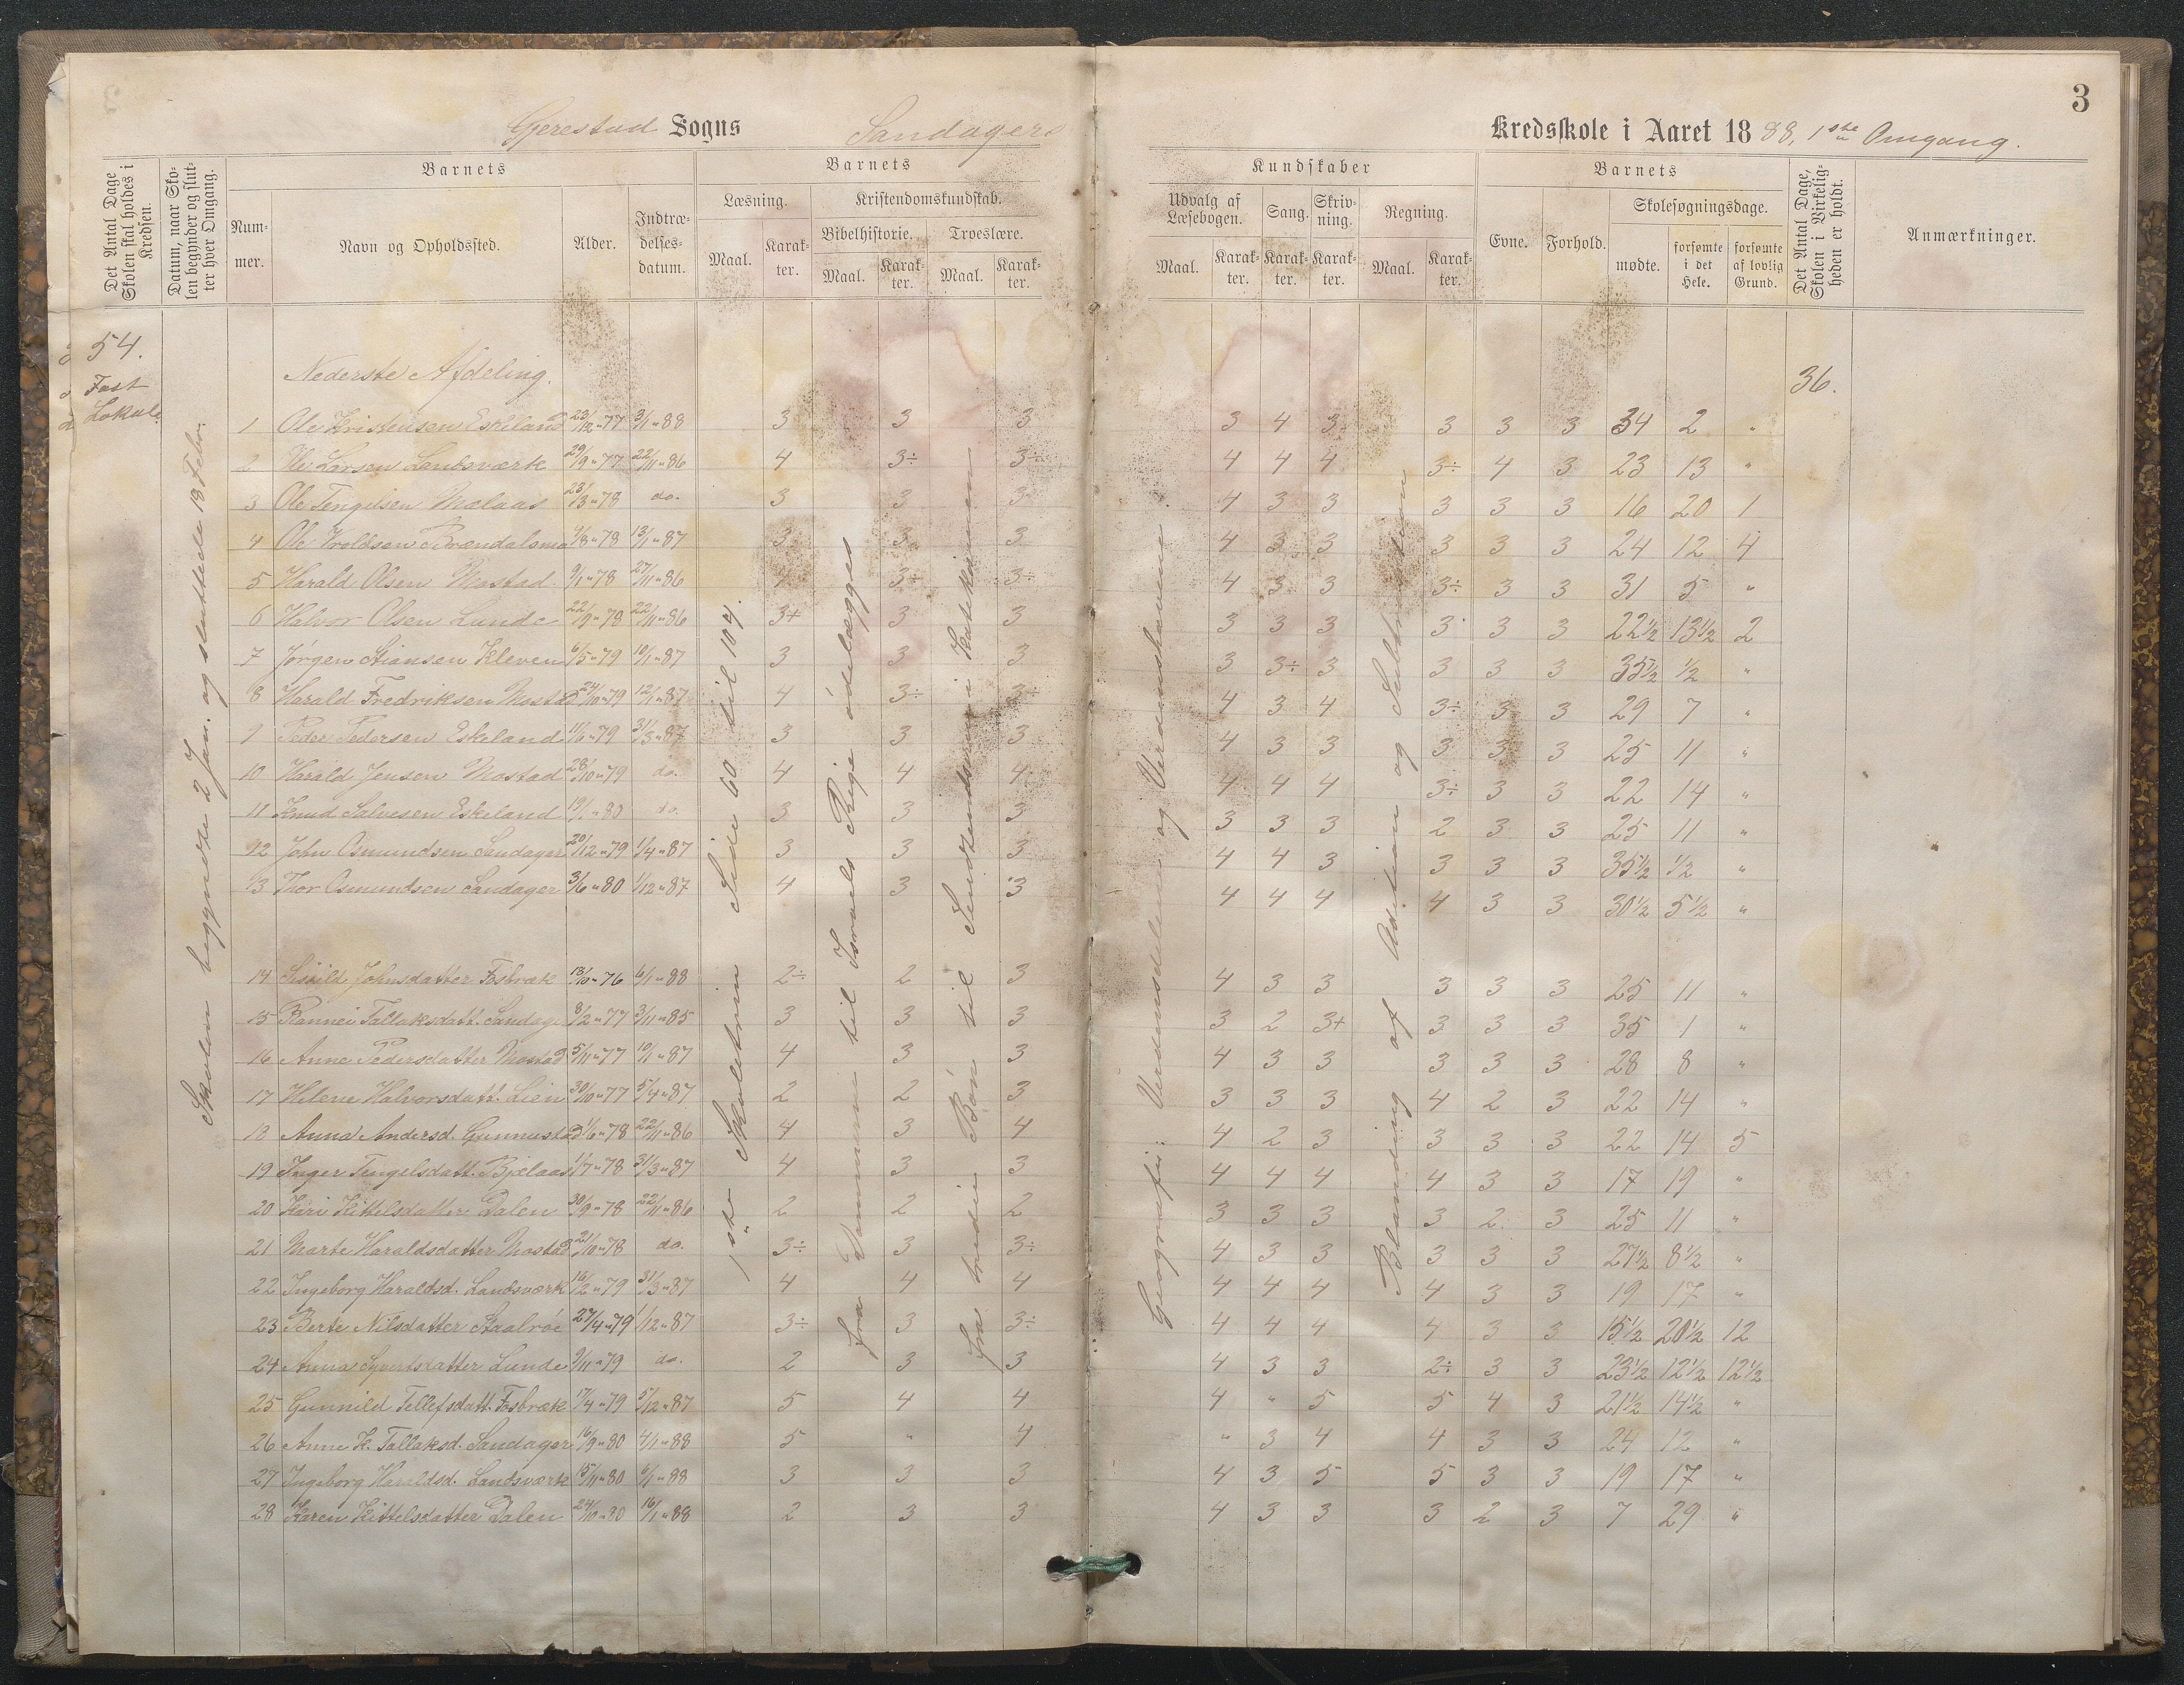 3
Gjerestad Sogns Sandagers Kredsskole i Aaret 1888, 1ste Omgang.
Det Antal Dage Skolen skal holdes i Kredsen.
Datum, naar Skolen begynder og slutter hver Omgang.
Barnets
Nummer.
Navn og Opholdssted.
Alder.
Indtrædelsesdatum.
Barnets
Læsning.
Maal.
Karakter.
Kristendomskundskab.
Bibelhistorie.
Maal.
Karakter.
Troeslære.
Maal.
Karakter.
Kundskaber
Udvalg af Læsebogen.
Maal.
Karakter.
Sang.
Karakter.
Skrivning.
Karakter.
Regning.
Maal.
Karakter.
Barnets
Evne.
Forhold.
Skolesøgningsdage.
mødte.
forsømte i det Hele.
forsømte af lovlig Grund.
Det Antal Dage, Skolen i Virkeligheden er holdt.
Anmærkninger.
54.
Fast
Lokale
Skolen begyndte 2 Jan. og sluttede 18 Febr.
Nederste Afdeling.
36.
1ste Skoletrin Side 60 til 104.
fra Dommerne til Israels Rige ødelægges
fra tredie Bøn til Sendtendsens i Katekismen
Geografi: Verdensdelene og Verdenshavene.
Blanding af Adition og Subtraction
1 Ole Kristensen Eskeland 23/12 77 3/1 88 3 3 3 3 4 3 3 3 3 34 2 "
2 Ole Larsen Landsværk 29/9 77 22/11 86 4 3÷ 3÷ 4 4 4 3÷ 4 3 23 13 "
3 Ole Tengelsen 23/3 78 do. 3 3 3 4 3 3 3 3 3 16 20 1
4 Ole Troldsen Brændalsmo 4/8 78 13/1 87 3 3 3 4 3 3 3 3 3 24 12 4
5 Harald Olsen Mostad 9/1 78 27/11 86 3÷ 3÷ 4 3 3 3÷ 3 3 31 5 "
6 Halvor Olsen Lunde 22/9 78 22/11 86 3+ 3 3 3 3 3 3 3 3 22½ 13½ 2
7 Jørgen Stiansen Kleven 6/5 79 10/1 87 3 3 3 3 3÷ 3 3 3 3 35½ ½ "
8 Harald Fredriksen Mostad 24/10 79 12/1 87 4 3÷ 3÷ 4 3 4 3÷ 3 3 29 7 "
9 Peder Pedersen Eskeland 11/6 79 31/3 87 3 3 3 4 3 3 3 3 3 25 11 "
10 Harald Jensen Mostad 28/10 79 do. 4 4 4 4 4 4 3÷ 3 3 22 14 "
11 Knud Salvesen Eskeland 80 do. 3 3 3 3 3 3 2 3 3 25 11 "
12 John Osmundsen Sandager 20/12 79 1/4 87 3 3 3 4 4 3 3 3 3 35½ ½ "
13 Thor Osmundsen Sandager 3/6 80 1/12 87 4 3 3 4 4 4 4 3 3 30½ 5½ "
14 Siskild Johnsdatter Fosbræk 13/10 76 6/1 88 2÷ 2 3 4 3 3 3 3 3 25 11 "
15 Rannei Tallaksdatt. Sandage 8/2 77 3/11 85 3 3 3 3 2 3+ 3 3 3 35 1 "
16 Anne Pedersdatter Mostad 5/11 77 10/1 87 4 3 3 4 3 3 3 3 3 28 8 "
17 Helene Halvorsdatt. Lien 30/10 77 5/4 87 2 2 3 3 3 3 4 2 3 22 14 "
18 Anna Andersd. Gunnustad 1/6 78 22/11 86 4 3 4 4 2 3 3 3 3 22 14 5
19 Inger Tengelsdatt. Bjelaas 1/7 78 31/3 87 4 3 3 4 4 4 4 3 3 17 19 "
20 Kari Kittelsdatter Dalen 30/9 78 22/11 86 2 2 2 3 3 3 3 2 3 25 11 "
21 Marte Haraldsdatter Mostad 21/10 78 do. 3÷ 3 3÷ 4 3 3 3 3 3 27½ 8½ "
22 Ingeborg Haraldsd. Landsværk 16/2 79 31/3 87 4 4 4 4 4 4 4 3 3 19 17 "
23 Berte Nilsdatter Staalrøe 27/4 79 1/12 87 3÷ 3 3÷ 4 4 4 4 3 3 15½ 20½ 12
24 Anna Syvertsdatter Lunde 9/11 79 do. 2 3 3 4 3 3 2÷ 3 3 23½ 12½ 12½
25 Gunnild Tellefsdatt. Fosbræk 17/4 79 5/12 87 5 4 4 4 " 5 5 4 3 21½ 14½ "
26 Anne K. Tallaksd. Sandager 16/9 80 4/1 88 5 " 4 " 3 4 4 3 3 24 12 "
27 Ingeborg Haraldsd. Landsværk 15/11 80 6/1 88 3 3 3 4 3 5 5 3 3 19 17 "
28 Karen Kittelsdatter Dalen 24/10 80 16/1 88 2 3 3 4 3 3 3 2 3 7 29 "